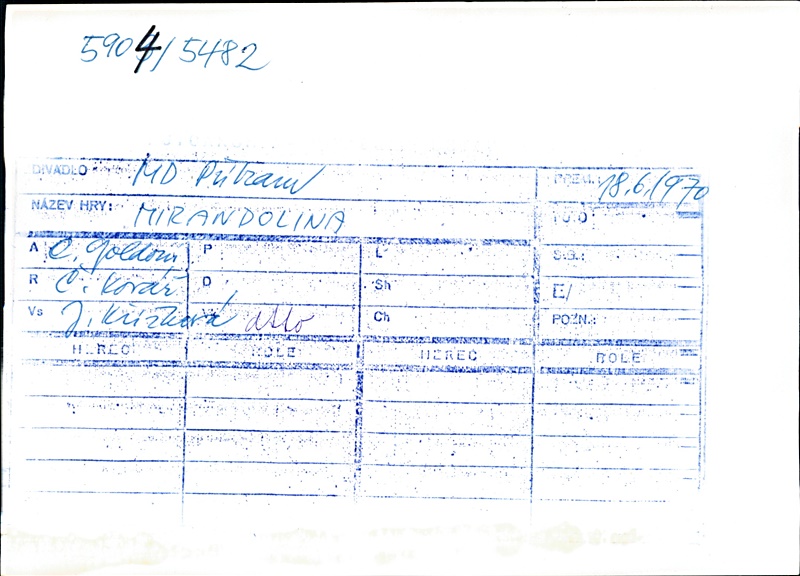 5904/5482
DIVADLO MD Příbram PREM. 18.6.1970
NÁZEV HRY: MIRANDOLINA
A C. Goldoni P L SIG.:
R Č. Kovář D Sh E/
Vs J. Křížková Ch POZN.:
HEREC ROLE HEREC ROLE